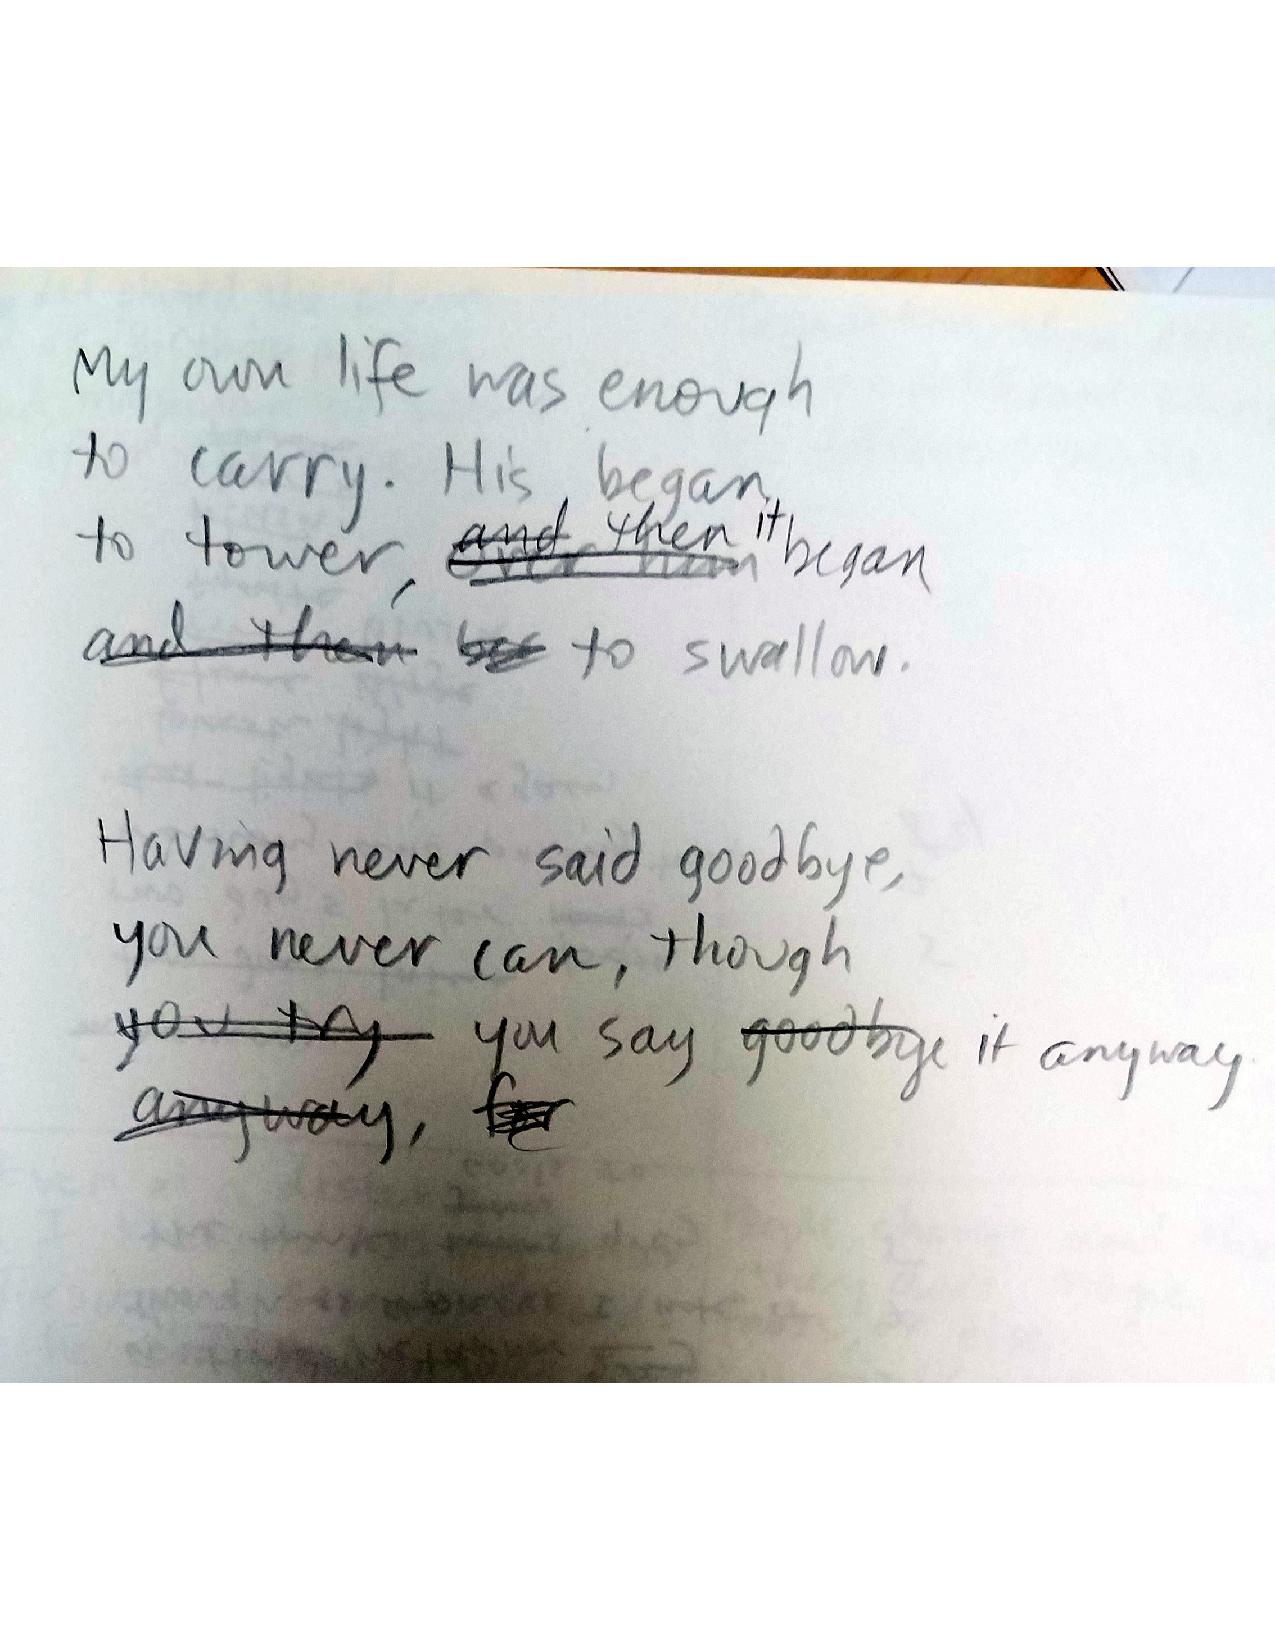 My own life was enough
to carry. His began
to tower, and then it began
over him
and then to swallow.
Having never said goodbye,
you never can, though
you try you say goodbye it anyway.
anyway,